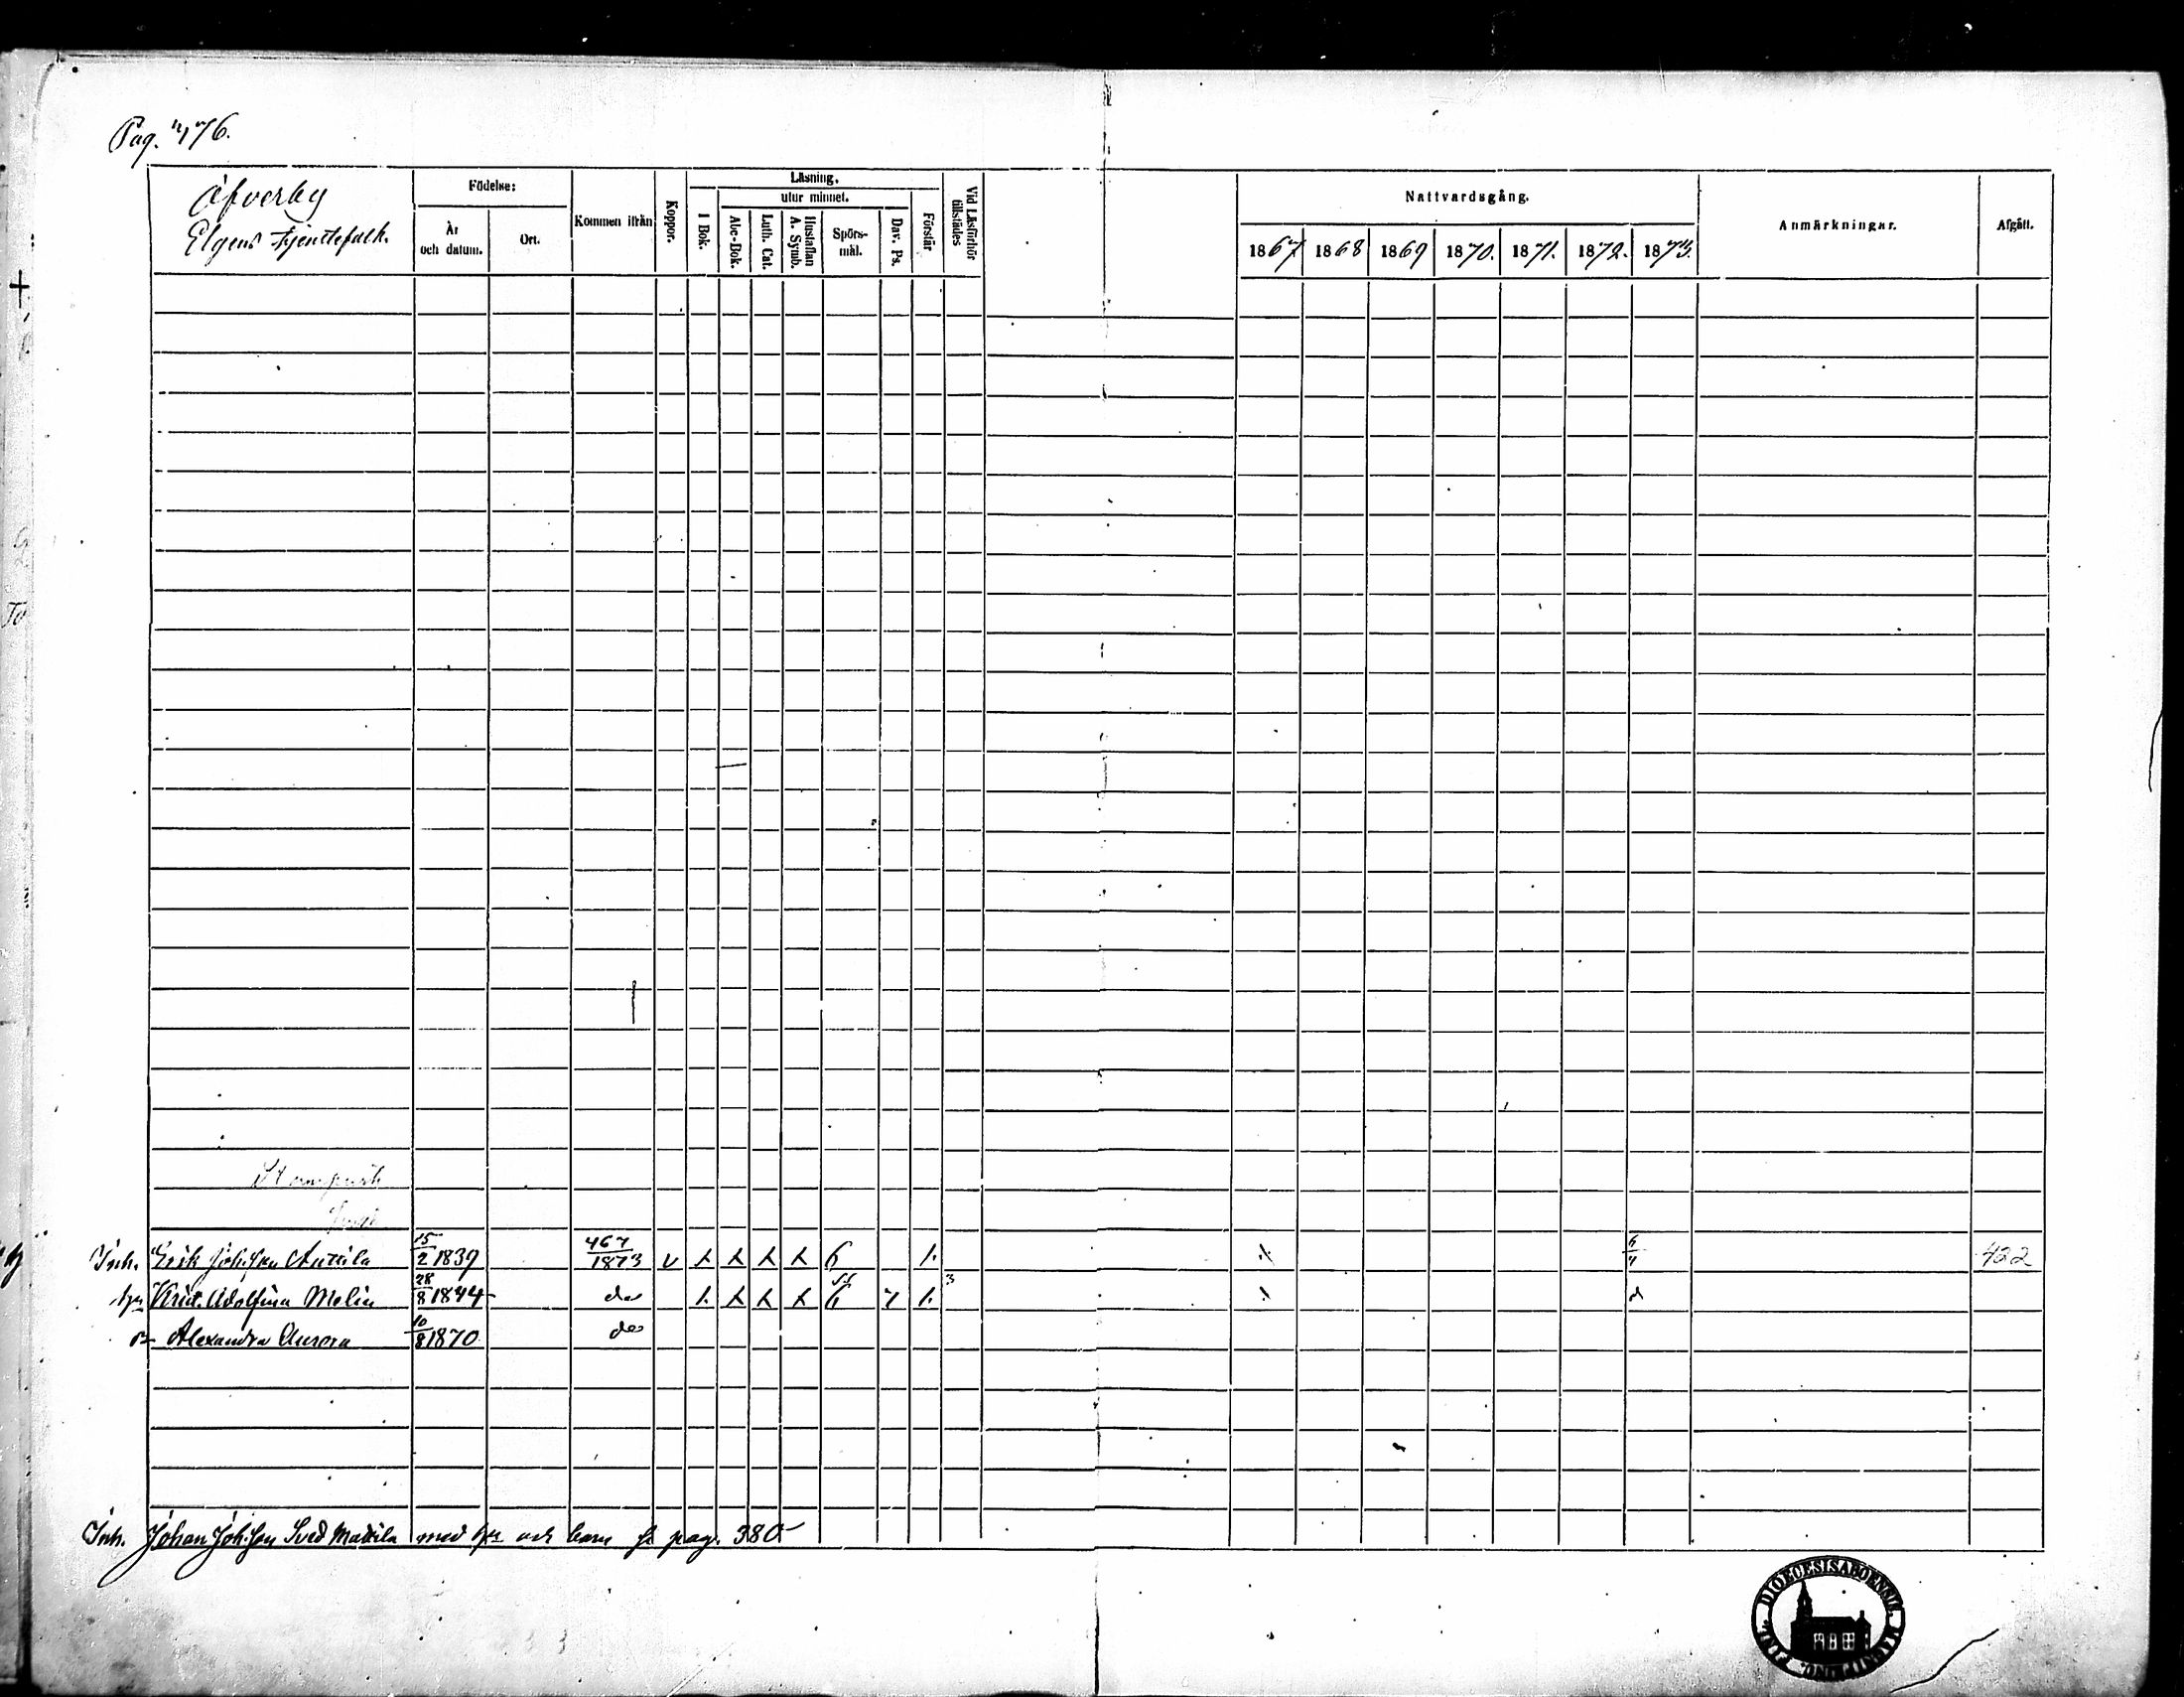 Pag. 476.
Öfverby
Elgens tjenstefolk.
Födelse:
År och datum.
Ort.
Kommen ifrån
Koppor.
Läsning.
I Bok.
utur minnet.
Abc-Bok.
Luth. Cat.
Hustaflan A. Symb.
Spörs-mål.
Dav. Ps.
Förstår
Vid Läsförhör tillstädes
Nattvardsgång.
1867 1868 1869 1870. 1871. 1872. 1873.
Anmärkningar.
Afgått.
Inh. Erik Joh:son Anttila 15/2 1839 467/1873 v 6 6/4 422
hu Krist. Adolfina Melin 28/8 1844 do 6 3
dr Alexandra Aurora 10/8 1870 do
Inh. Johan Joh:son Sved Mattila med hu och barn fr pag. 380
DIOECESIS ABOENSIS